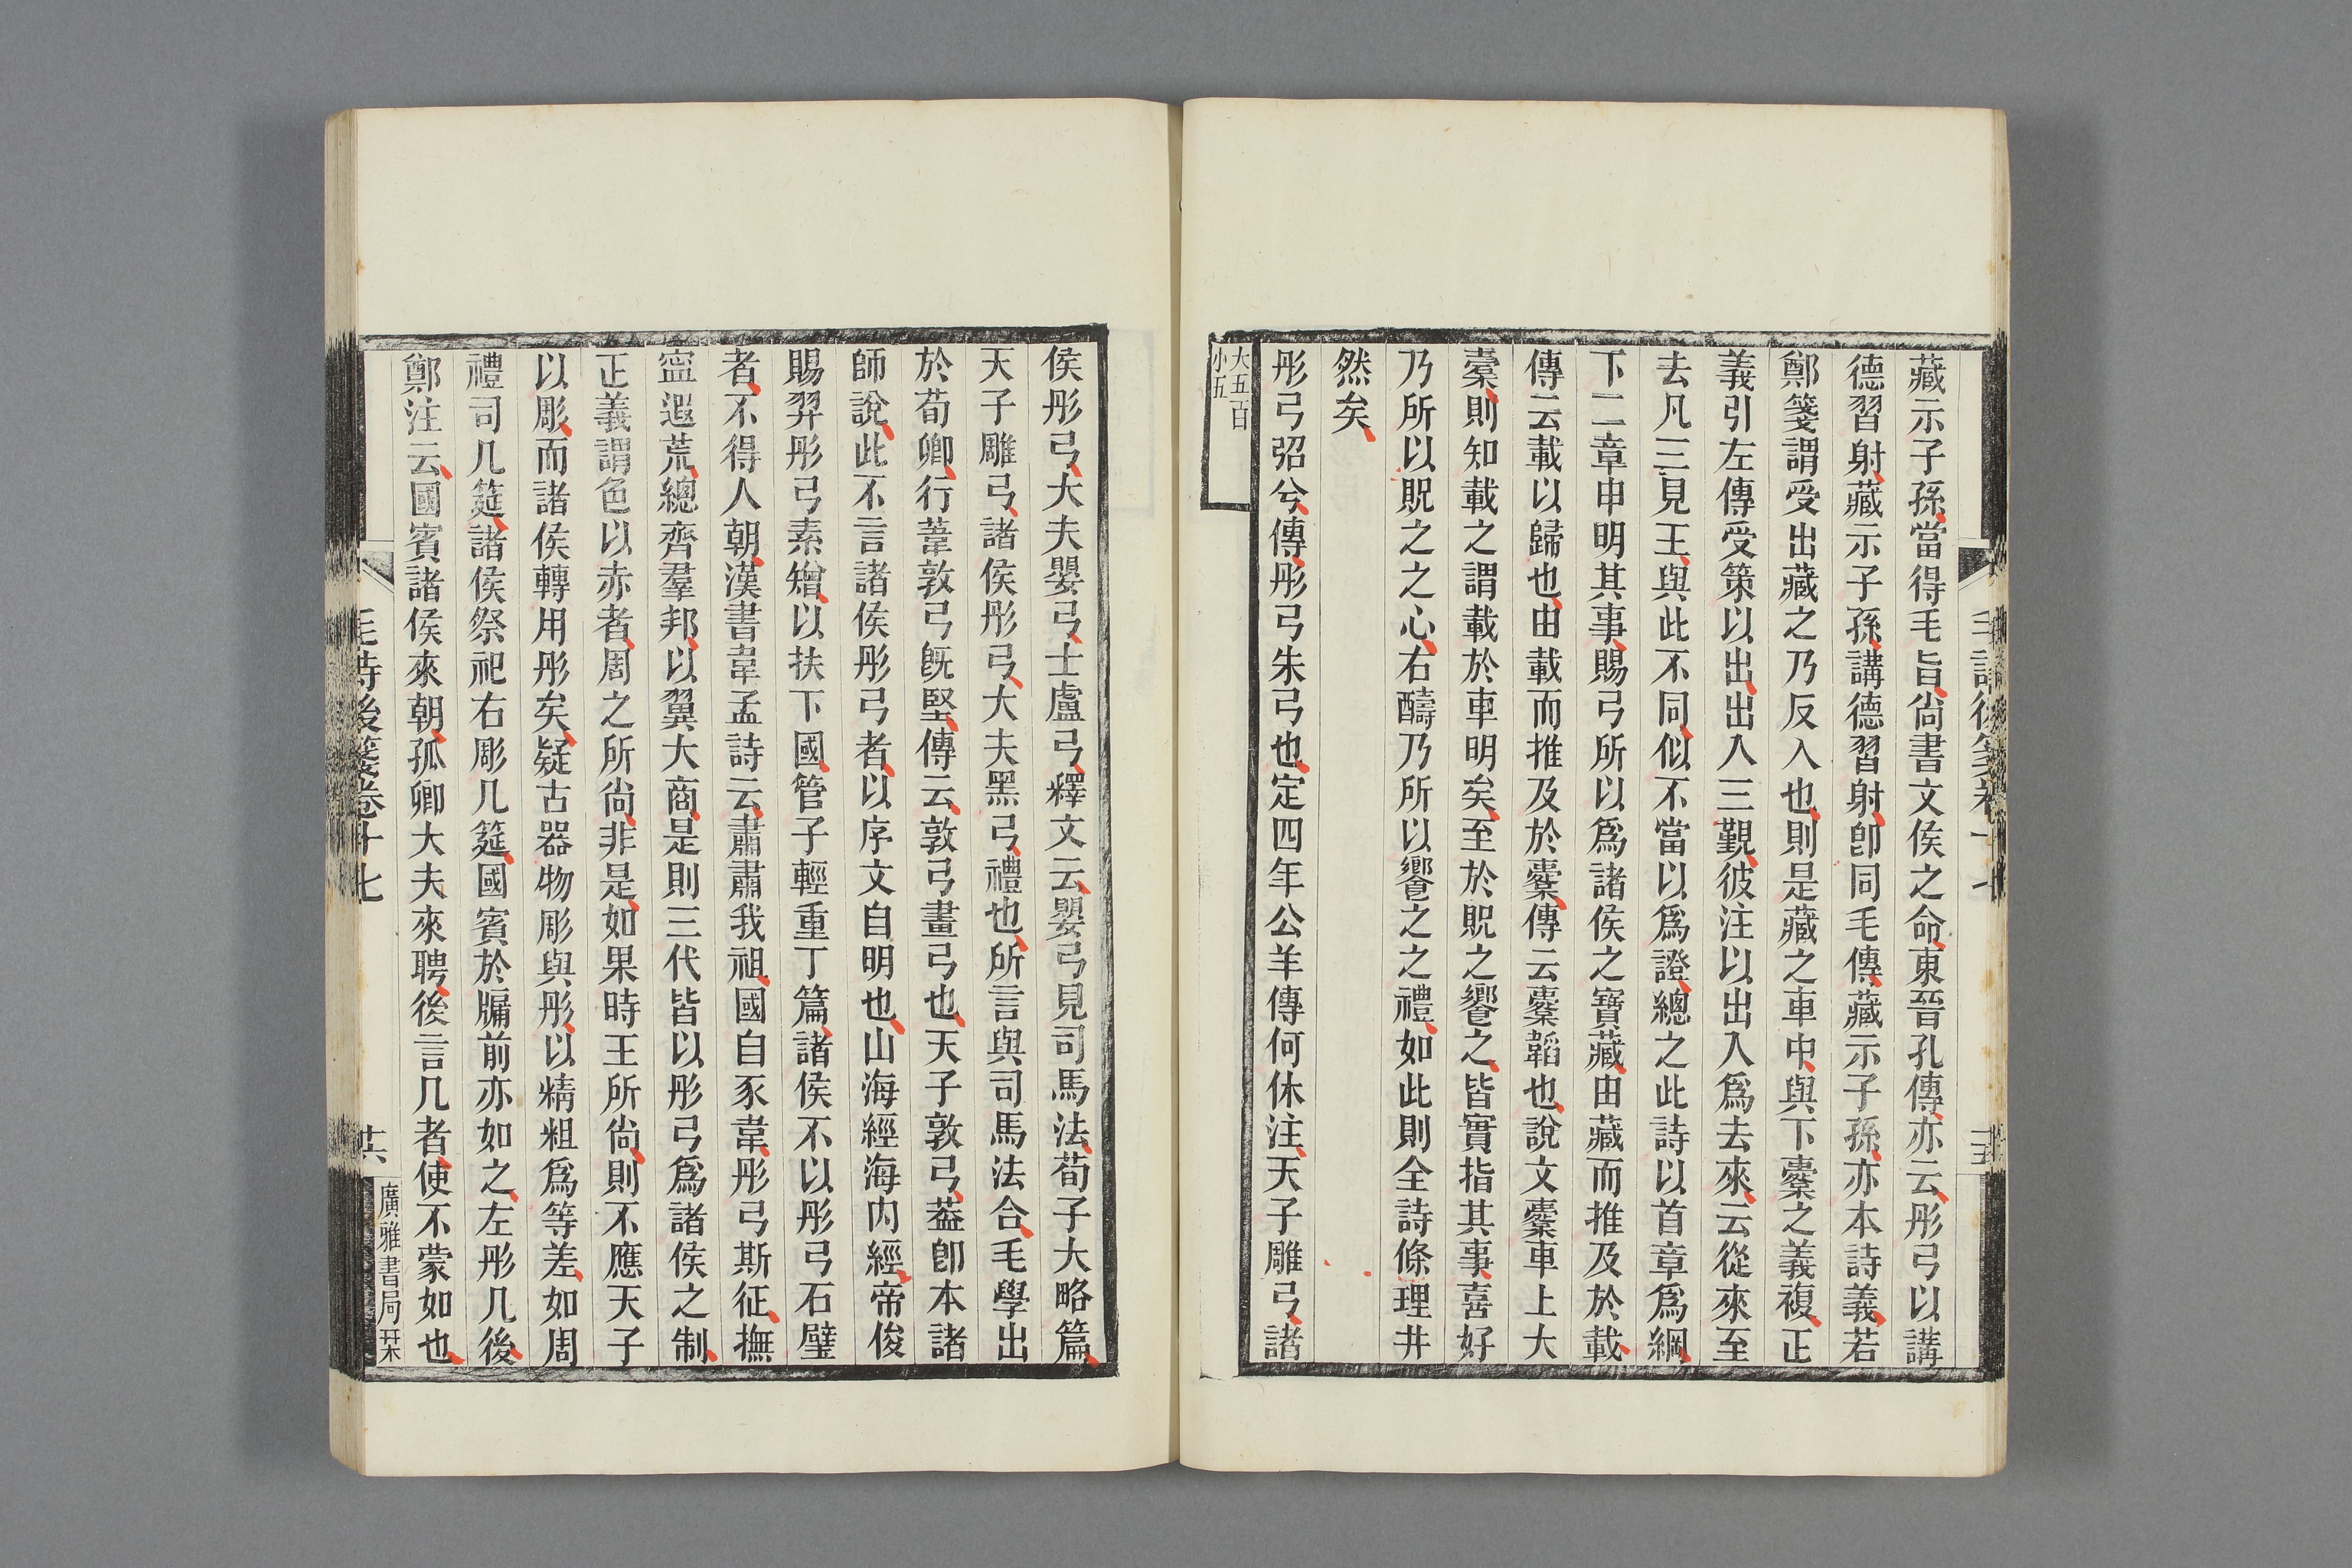 藏示子孫當得毛旨尙書文侯之命東晉孔傳亦云彤弓以講
德習射藏示子孫講德習射卽同毛傳藏示子孫亦本詩義若
鄭箋謂受出藏之乃反入也則是藏之車中與下櫜之義複正
義引左傳受策以出出入三覲彼注以出入爲去來云從來至
去凡三見王與此不同似不當以爲證總之此詩以首章爲綱
下二章申明其事賜弓所以爲諸侯之寶藏由藏而推及於載
傳云載以歸也由載而推及於櫜傳云櫜韜也說文櫜車上大
櫜則知載之謂載於車明矣至於貺之饗之皆實指其事喜好
乃所以貺之之心右醻乃所以饗之之禮如此則全詩條理井
然矣
彤弓弨兮傳彤弓朱弓也定四年公羊傳何休注天子雕弓諸
大五百
小五
侯彤弓大夫嬰弓士盧弓釋文云嬰弓見司馬法荀子大略篇
天子雕弓諸侯彤弓大夫黑弓禮也所言與司馬法合毛學出
於荀卿行葦敦弓旣堅傳云敦弓畫弓也天子敦弓葢卽本諸
師說此不言諸侯彤弓者以序文自明也山海經海內經帝俊
賜羿彤弓素矰以扶下國管子輕重丁篇諸侯不以彤弓石璧
者不得人朝漢書韋孟詩云肅肅我祖國自豕韋彤弓斯征撫
寍遐荒總齊羣邦以翼大商是則三代皆以彤弓爲諸侯之制
正義謂色以赤者周之所尙非是如果時王所尙則不應天子
以彫而諸侯轉用彤矣疑古器物彫與彤以精粗爲等差如周
禮司几筵諸侯祭祀右彫几筵國賓於牖前亦如之左彤几後
鄭注云國賓諸侯來朝孤卿大夫來聘後言几者使不蒙如也
毛詩後箋卷十七
廿六
廣雅書局栞